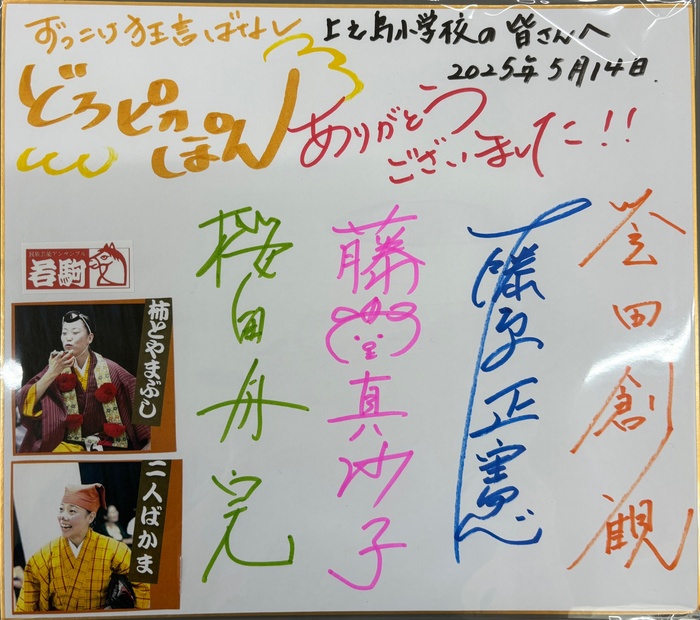 ずっこけ狂言ばなし
どろピカ
ぽん
小学校の皆さんへ
2025年5月14日.
ありがとう
ございました!!
田創観
藤原正憲
藤 真沙子
桜田舟完
若駒
柿とやまぶし
二人ばかま